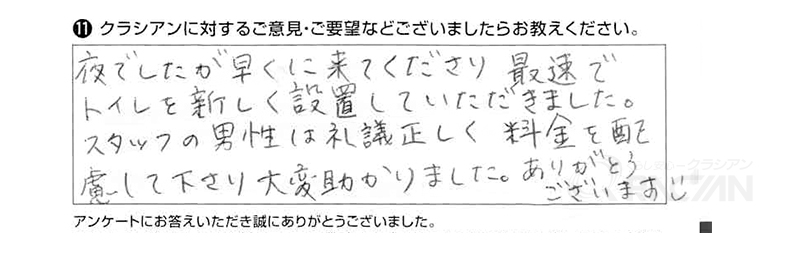 ⓫ クラシアンに対するご意見・ご要望などございましたらお教えください。
夜でしたが早くに来てくださり 最速で
トイレを新しく設置していただきました。
スタッフの男性は礼議正しく 料金を配
慮して下さり大変助かりました。ありがとう
ございます
アンケートにお答えいただき誠にありがとうございました。
クラシアン